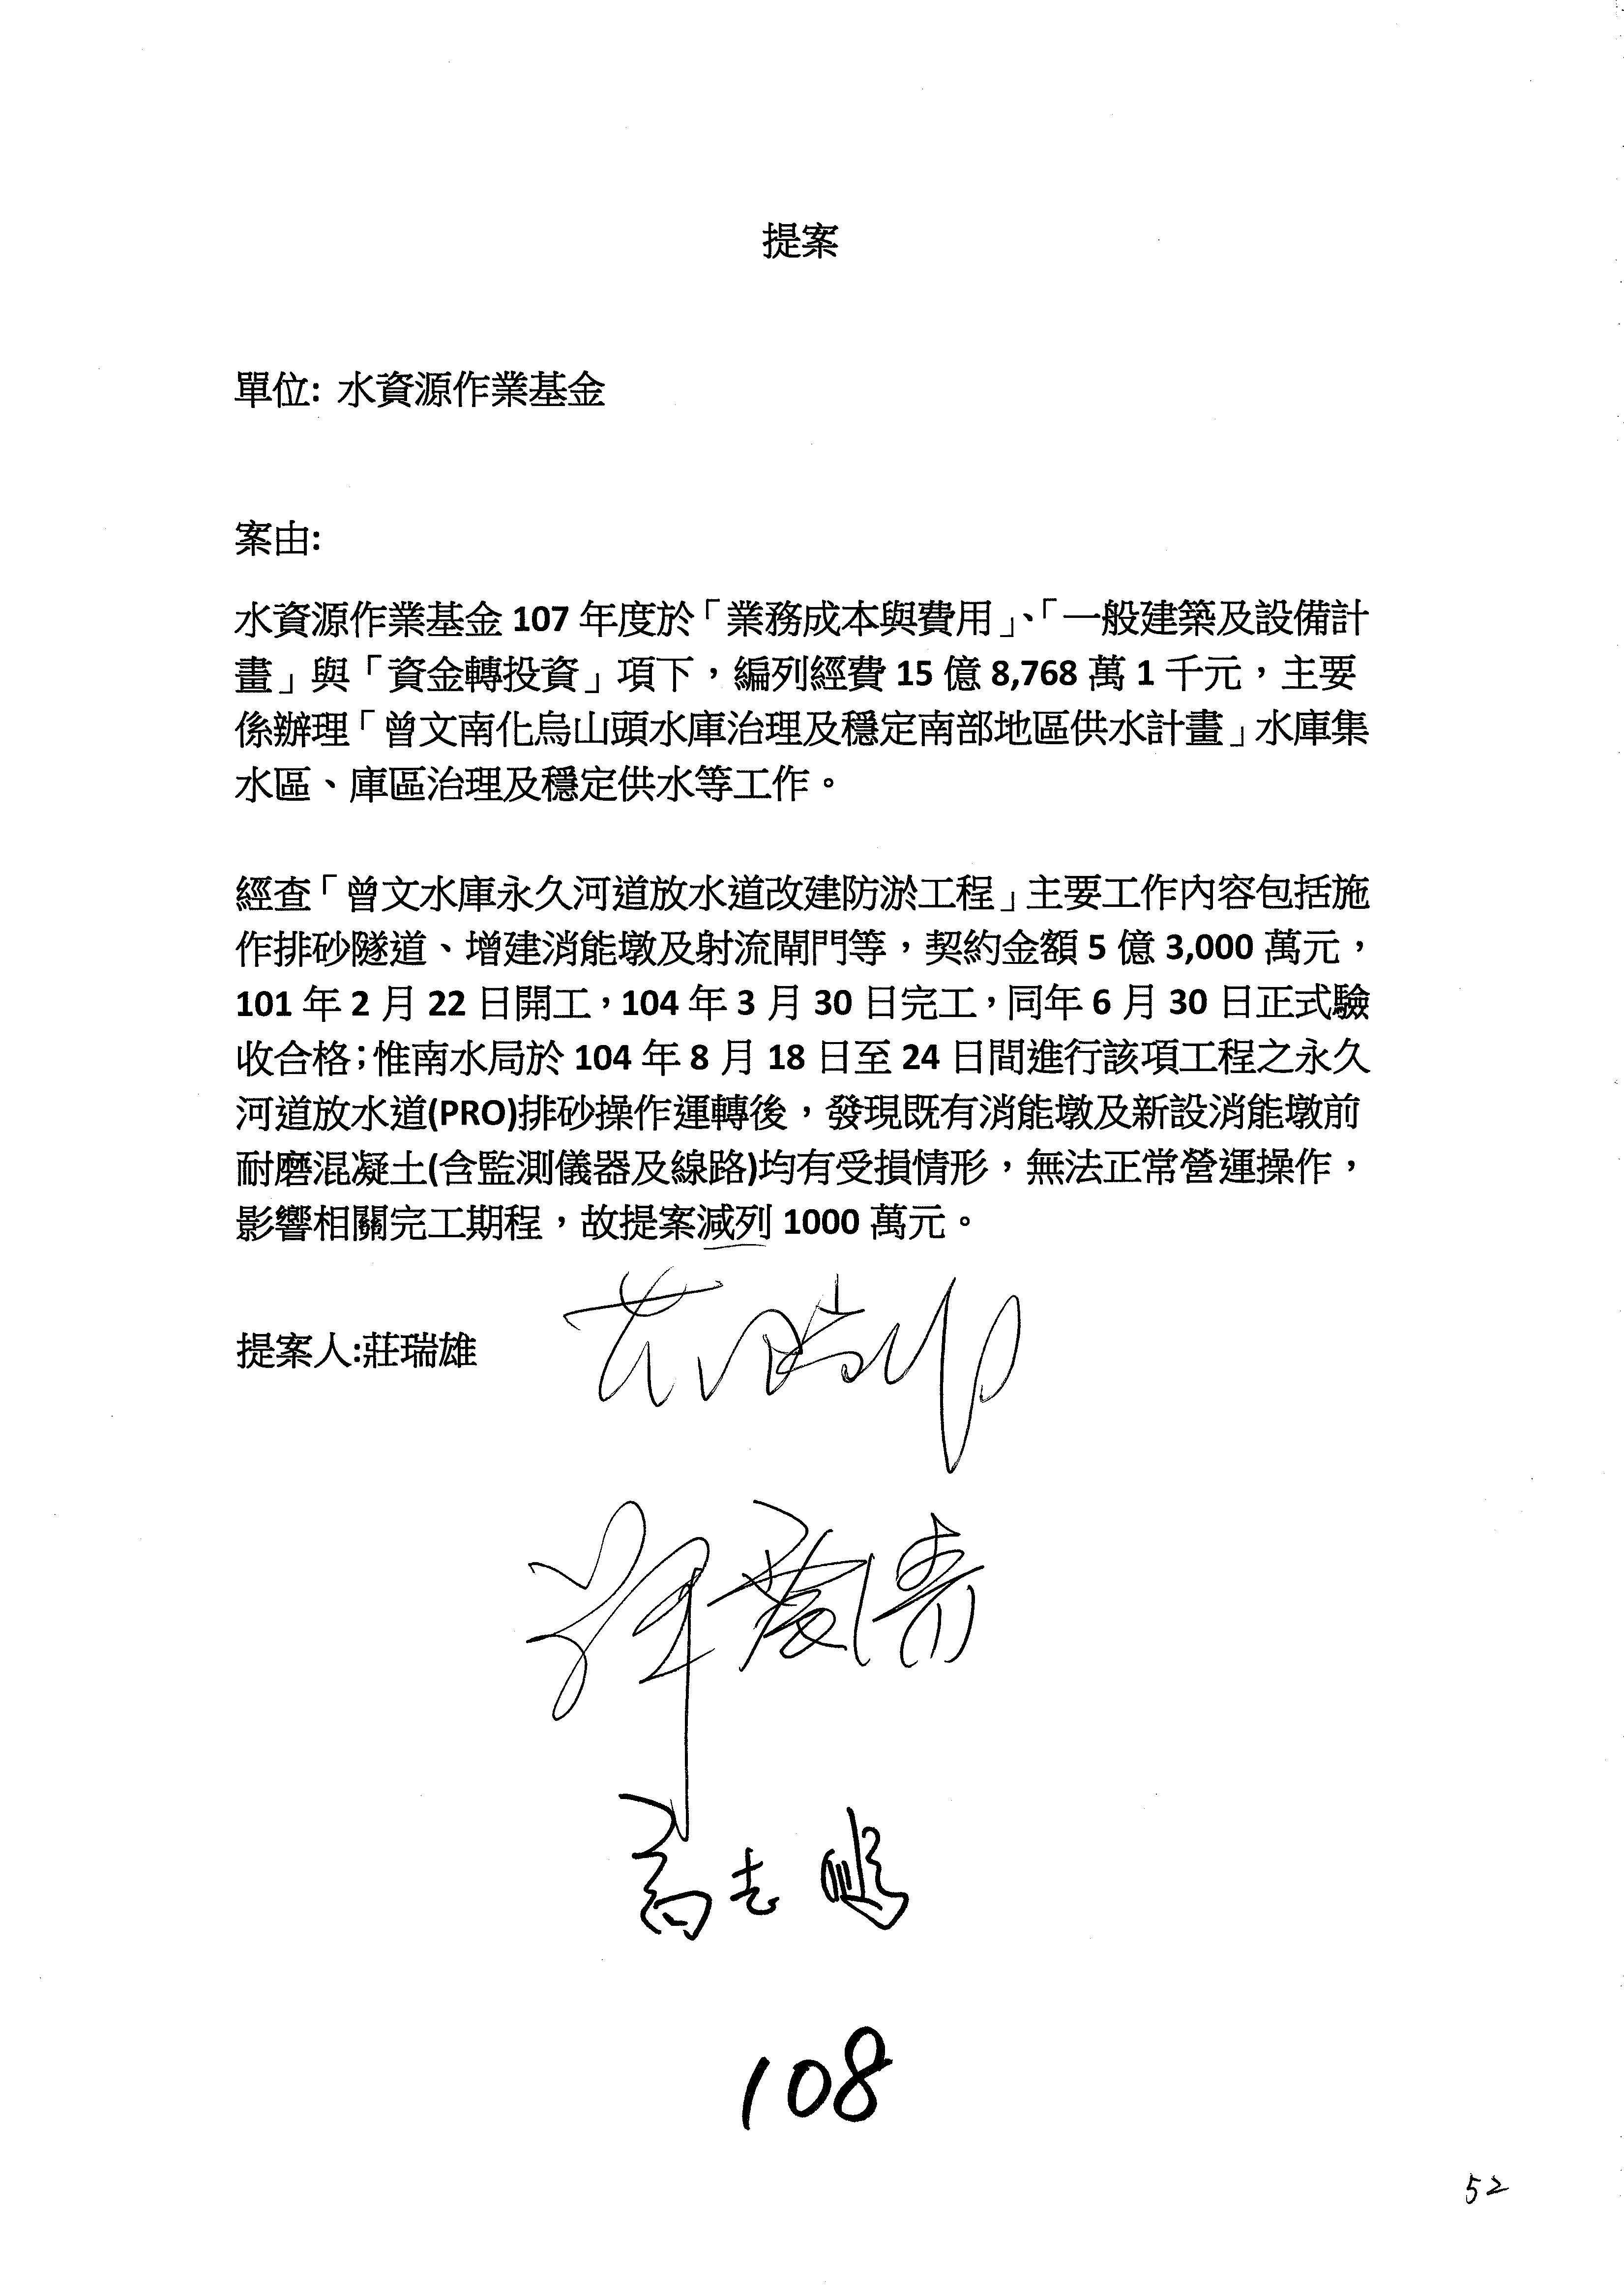 提案
單位: 水資源作業基金
案由:
水資源作業基金 107 年度於「業務成本與費用」、「一般建築及設備計
畫」與「資金轉投資」項下，編列經費 15 億 8,768 萬 1 千元，主要
係辦理「曾文南化烏山頭水庫治理及穩定南部地區供水計畫」水庫集
水區、庫區治理及穩定供水等工作。
經查「曾文水庫永久河道放水道改建防淤工程」主要工作內容包括施
作排砂隧道、增建消能墩及射流閘門等，契約金額 5 億 3,000 萬元，
101 年 2 月 22 日開工，104 年 3 月 30 日完工，同年 6 月 30 日正式驗
收合格；惟南水局於 104 年 8 月 18 日至 24 日間進行該項工程之永久
河道放水道(PRO)排砂操作運轉後，發現既有消能墩及新設消能墩前
耐磨混凝土(含監測儀器及線路)均有受損情形，無法正常營運操作，
影響相關完工期程，故提案減列 1000 萬元。
提案人:莊瑞雄 莊瑞雄
高志鵬
108
52